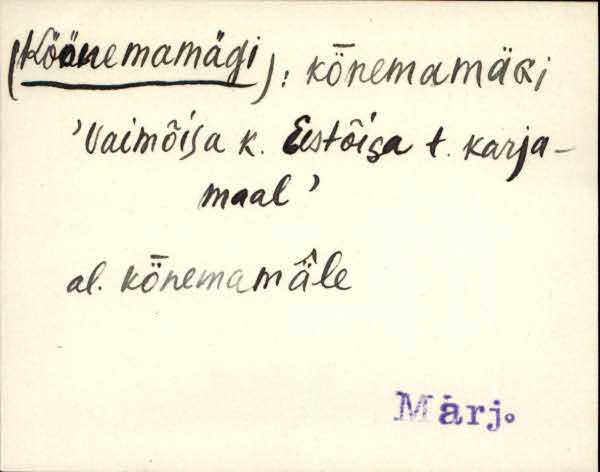 (Köönemamägi): kȫnemamäGi
'Vaimõisa k. Eestõisa t. karja-
maal'
al. kȫnemamä̂le
Märj.